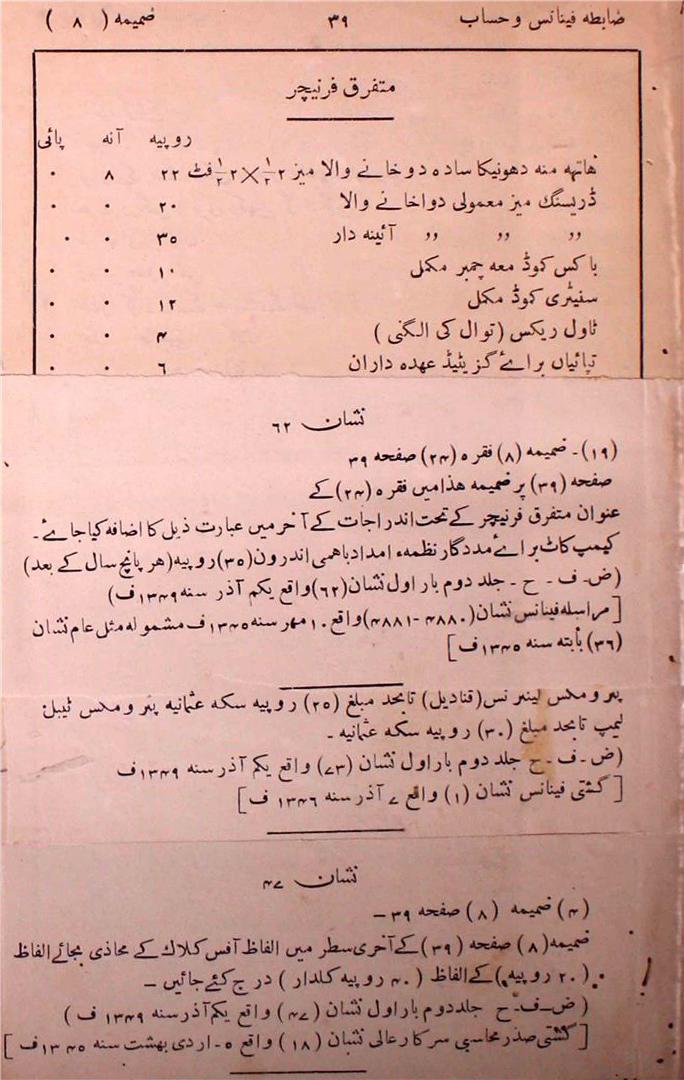 ضابطہ فینانس وحساب ۳۹ ضمیمہ ( ۸ )
متفرق فرنیچر
روپیہ آنہ پائی
ھاتھہ منہ دھونیکا سادہ دوخانے والا میز ۲½×۲½ فٹ ۲۲ ۸ ۰
ڈریسنگ میز معمولی دواخانے والا ۲۰ ۰ ۰
,, ,, ,, آئینہ دار ۳۵ ۰ ۰
باکس کموڈ معہ چمبر مکمل ۱۰ ۰ ۰
سنیٹری کموڈ مکمل ۱۲ ۰ ۰
ٹاول ریکس ( توال کی الگنی ) ۴ ۰ ۰
تپائیاں براۓ گزیٹیڈ عھدہ داران ۶ ۰ ۰
نشان ۶۲
(۱۹)۔ ضمیمہ (۸) فقرہ (۲۴) صفحہ ۳۹
صفحہ (۳۹) پر ضمیمہ ھذا میں فقرہ (۲۴) کے
عنوان متفرق فرنیچر کے تحت اندراجات کے آخر میں عبارت ذیل کا اضافہ کیا جاۓ۔
کیمپ کاٹ براۓ مددگار نظمہء امداد باھمی اندرون (۳۵) روپیہ (ھر پانچ سال کے بعد)
(ض۔ ف۔ ح۔ جلد دوم بار اول نشان (۶۲) واقع یکم آذر سنہ ۱۳۴۹ف)
[مراسلہ فینانس نشان (۴۸۸۰-۴۸۸۱) واقع ۱۰ مھر سنہ ۱۳۴۵ف مشمولہ مثل عام نشان
(۳۶) بابتہ سنہ ۱۳۴۵ف]
پٹرومکس لینٹرنس (قنادیل) تابحد مبلغ (۲۵) روپیہ سکہ عثمانیہ پٹرومکس ٹیبل
لیمپ تابحد مبلغ (۳۰) روپیہ سکہ عثمانیہ۔
(ض۔ ف۔ ح جلد دوم بار اول نشان (۷۳) واقع یکم آذر سنہ ۱۳۴۹ف
[گشتی فینانس نشان (۱) واقع ۷ آذر سنہ ۱۳۴۶ ف]
نشان ۴۷
(۴) ضمیمہ (۸) صفحہ ۳۹ –
ضمیمہ (۸) صفحہ (۳۹) کے آخری سطر میں الفاظ آفس کلاک کے محاذی بجائے الفاظ
(۲۰ روپیہ) کے الفاظ (۴۰ روپیہ کلدار) درج کئے جائیں –
(ض۔ ف۔ ح جلد دوم بار اول نشان (۴۷) واقع یکم آذر سنہ ۱۳۴۹ ف)
[گشتی صدر محاسبی سرکار عالی نشان (۱۸) واقع ۵۔ اردی بھشت سنہ ۱۳۴۵ف]